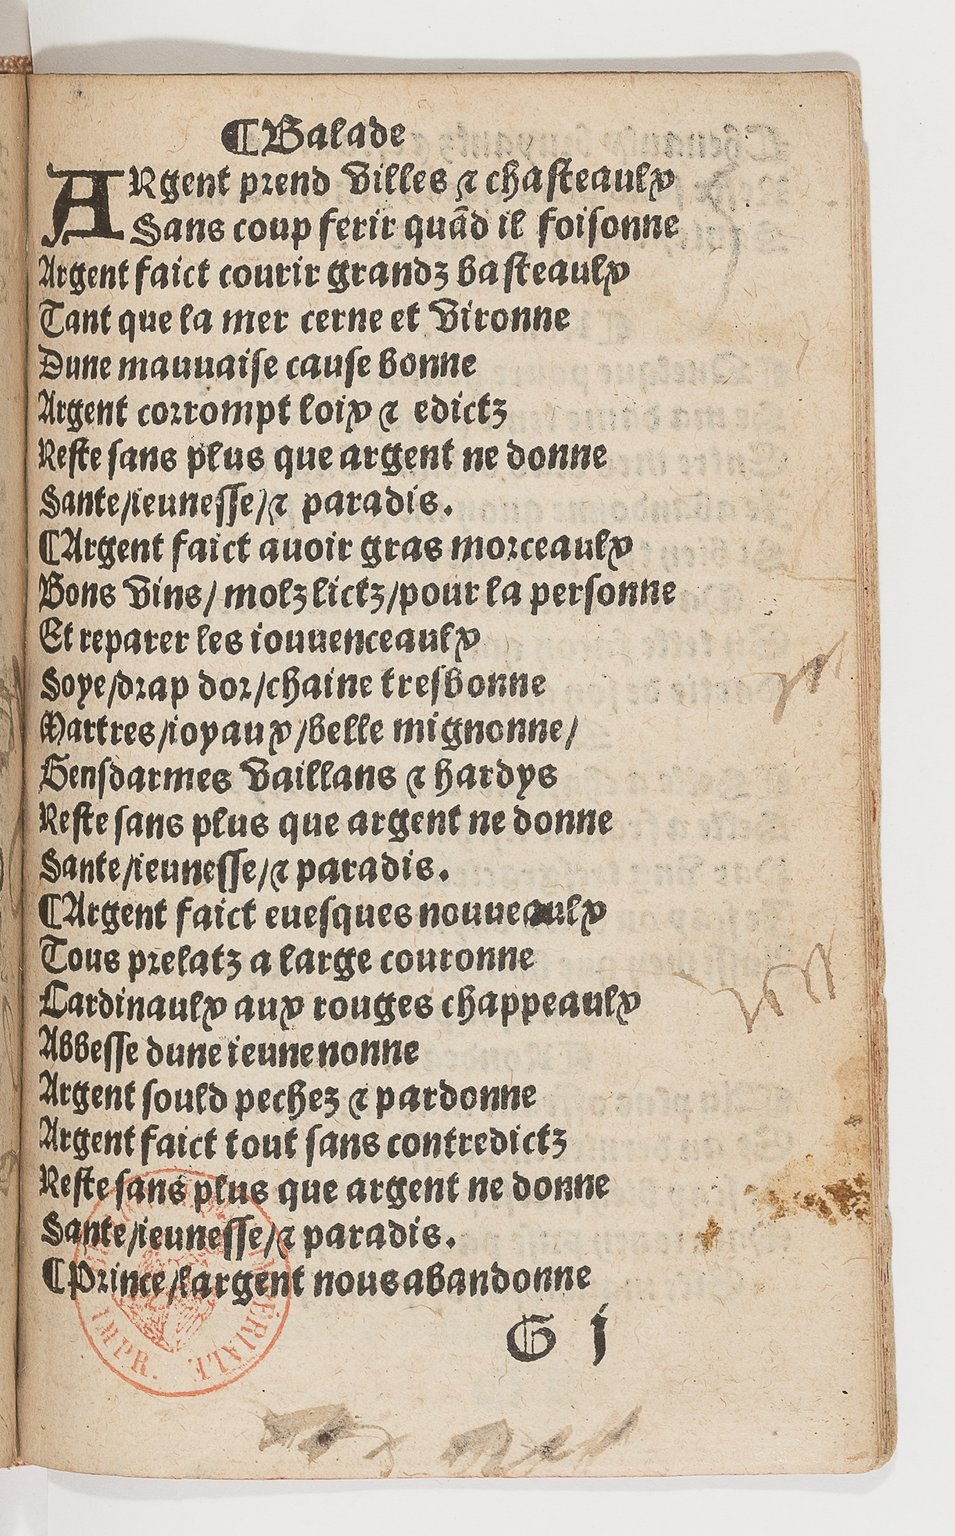 ¶Balade
ARgent prend villes ⁊ chasteaulx
Sans coup ferir quãd il foisonne
Argent faict courir grandz basteaulx
Tant que la mer cerne et vironne
Dune mauuaise cause bonne
Argent corrompt loix ⁊ edictz
Reste sans plus que argent ne donne
Sante/ieunesse/⁊ paradis.
¶Argent faict auoir gras morceaulx
Bons vins/ molz lictz/pour la personne
Et reparer les iouuenceaulx
Soye/drap dor/chaine tresbonne
Martres/ioyaux/belle mignonne/
Gensdarmes vaillans ⁊ hardys
Reste sans plus que argent ne donne
Sante/ieunesse/⁊ paradis.
¶Argent faict euesques nouueaulx
Tous prelatz a large couronne
Cardinaulx aux rouges chappeaulx
Abbesse dune ieune nonne
Argent sould pechez ⁊ pardonne
Argent faict tout sans contredictz
Reste sans plus que argent ne donne
Sante/ieunesse/⁊ paradis.
¶Prince/largent nous abandonne
G j
IMPÉRIALE IMPR.